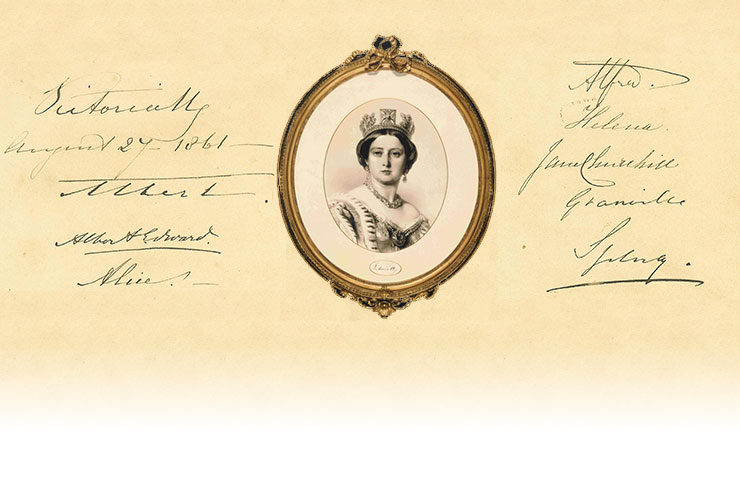 Victoria R
August 27 - 1861 -
Albert.
Albert Edward.
Alice. -
Alfred.
Helena.
Jane Churchill
Granville
Sydney.